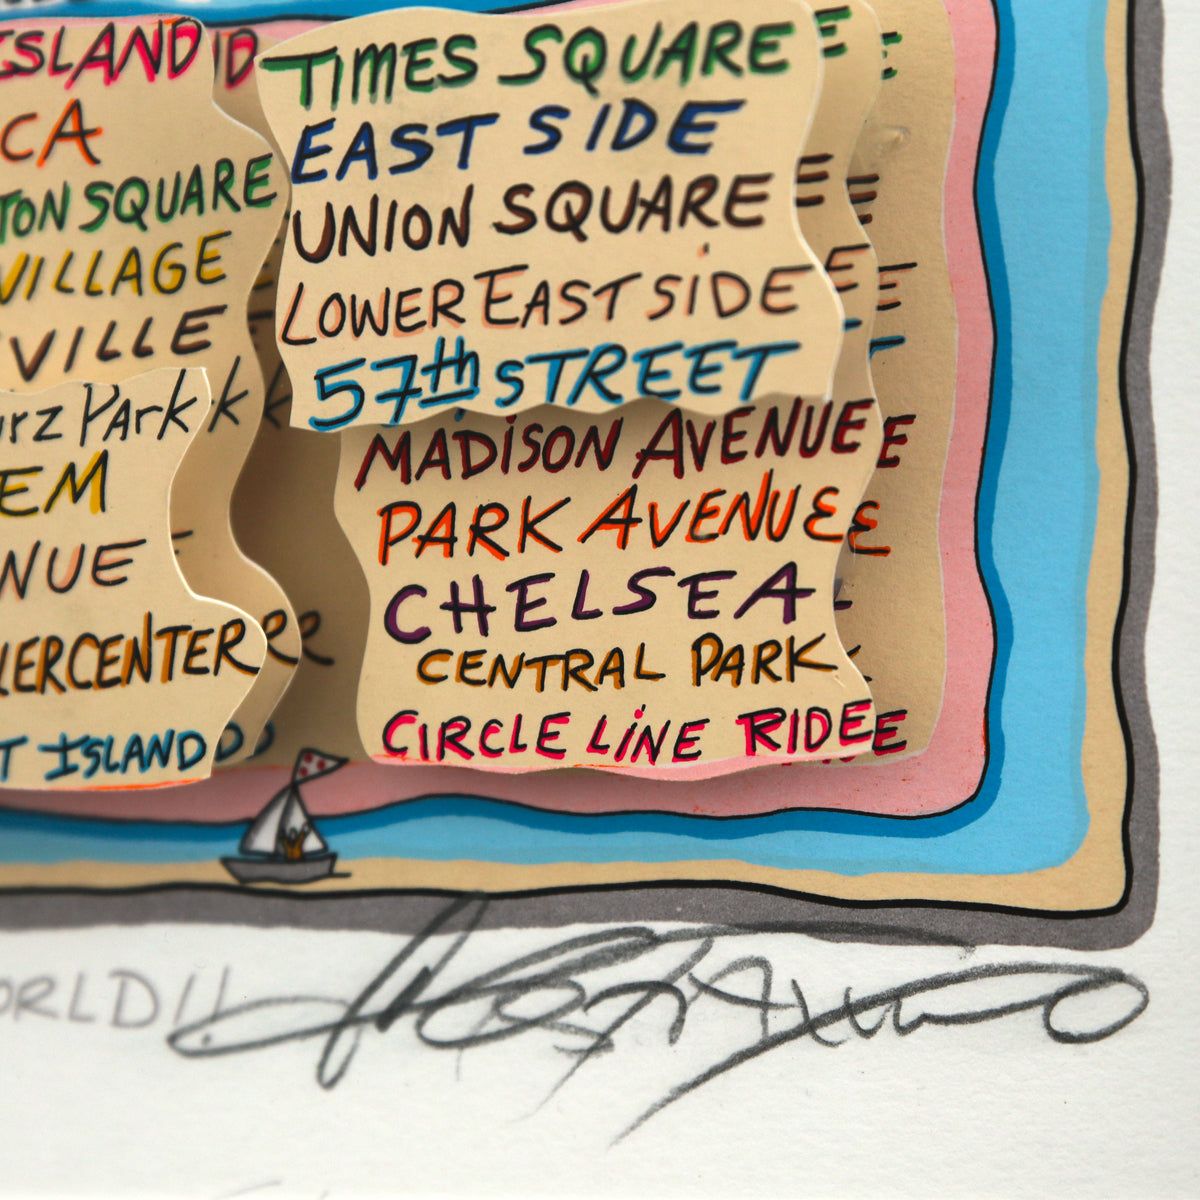 ISLAND
CA
TON SQUARE
VILLAGE
VILLE
urz Park
EM
NUE
ERCENTER
T ISLAND
TIMES SQUARE
EAST SIDE
UNION SQUARE
LOWER EAST SIDE
57th STREET
MADISON AVENUE
PARK AVENUE
CHELSEA
CENTRAL PARK
CIRCLE LINE RIDE
ORLD!!